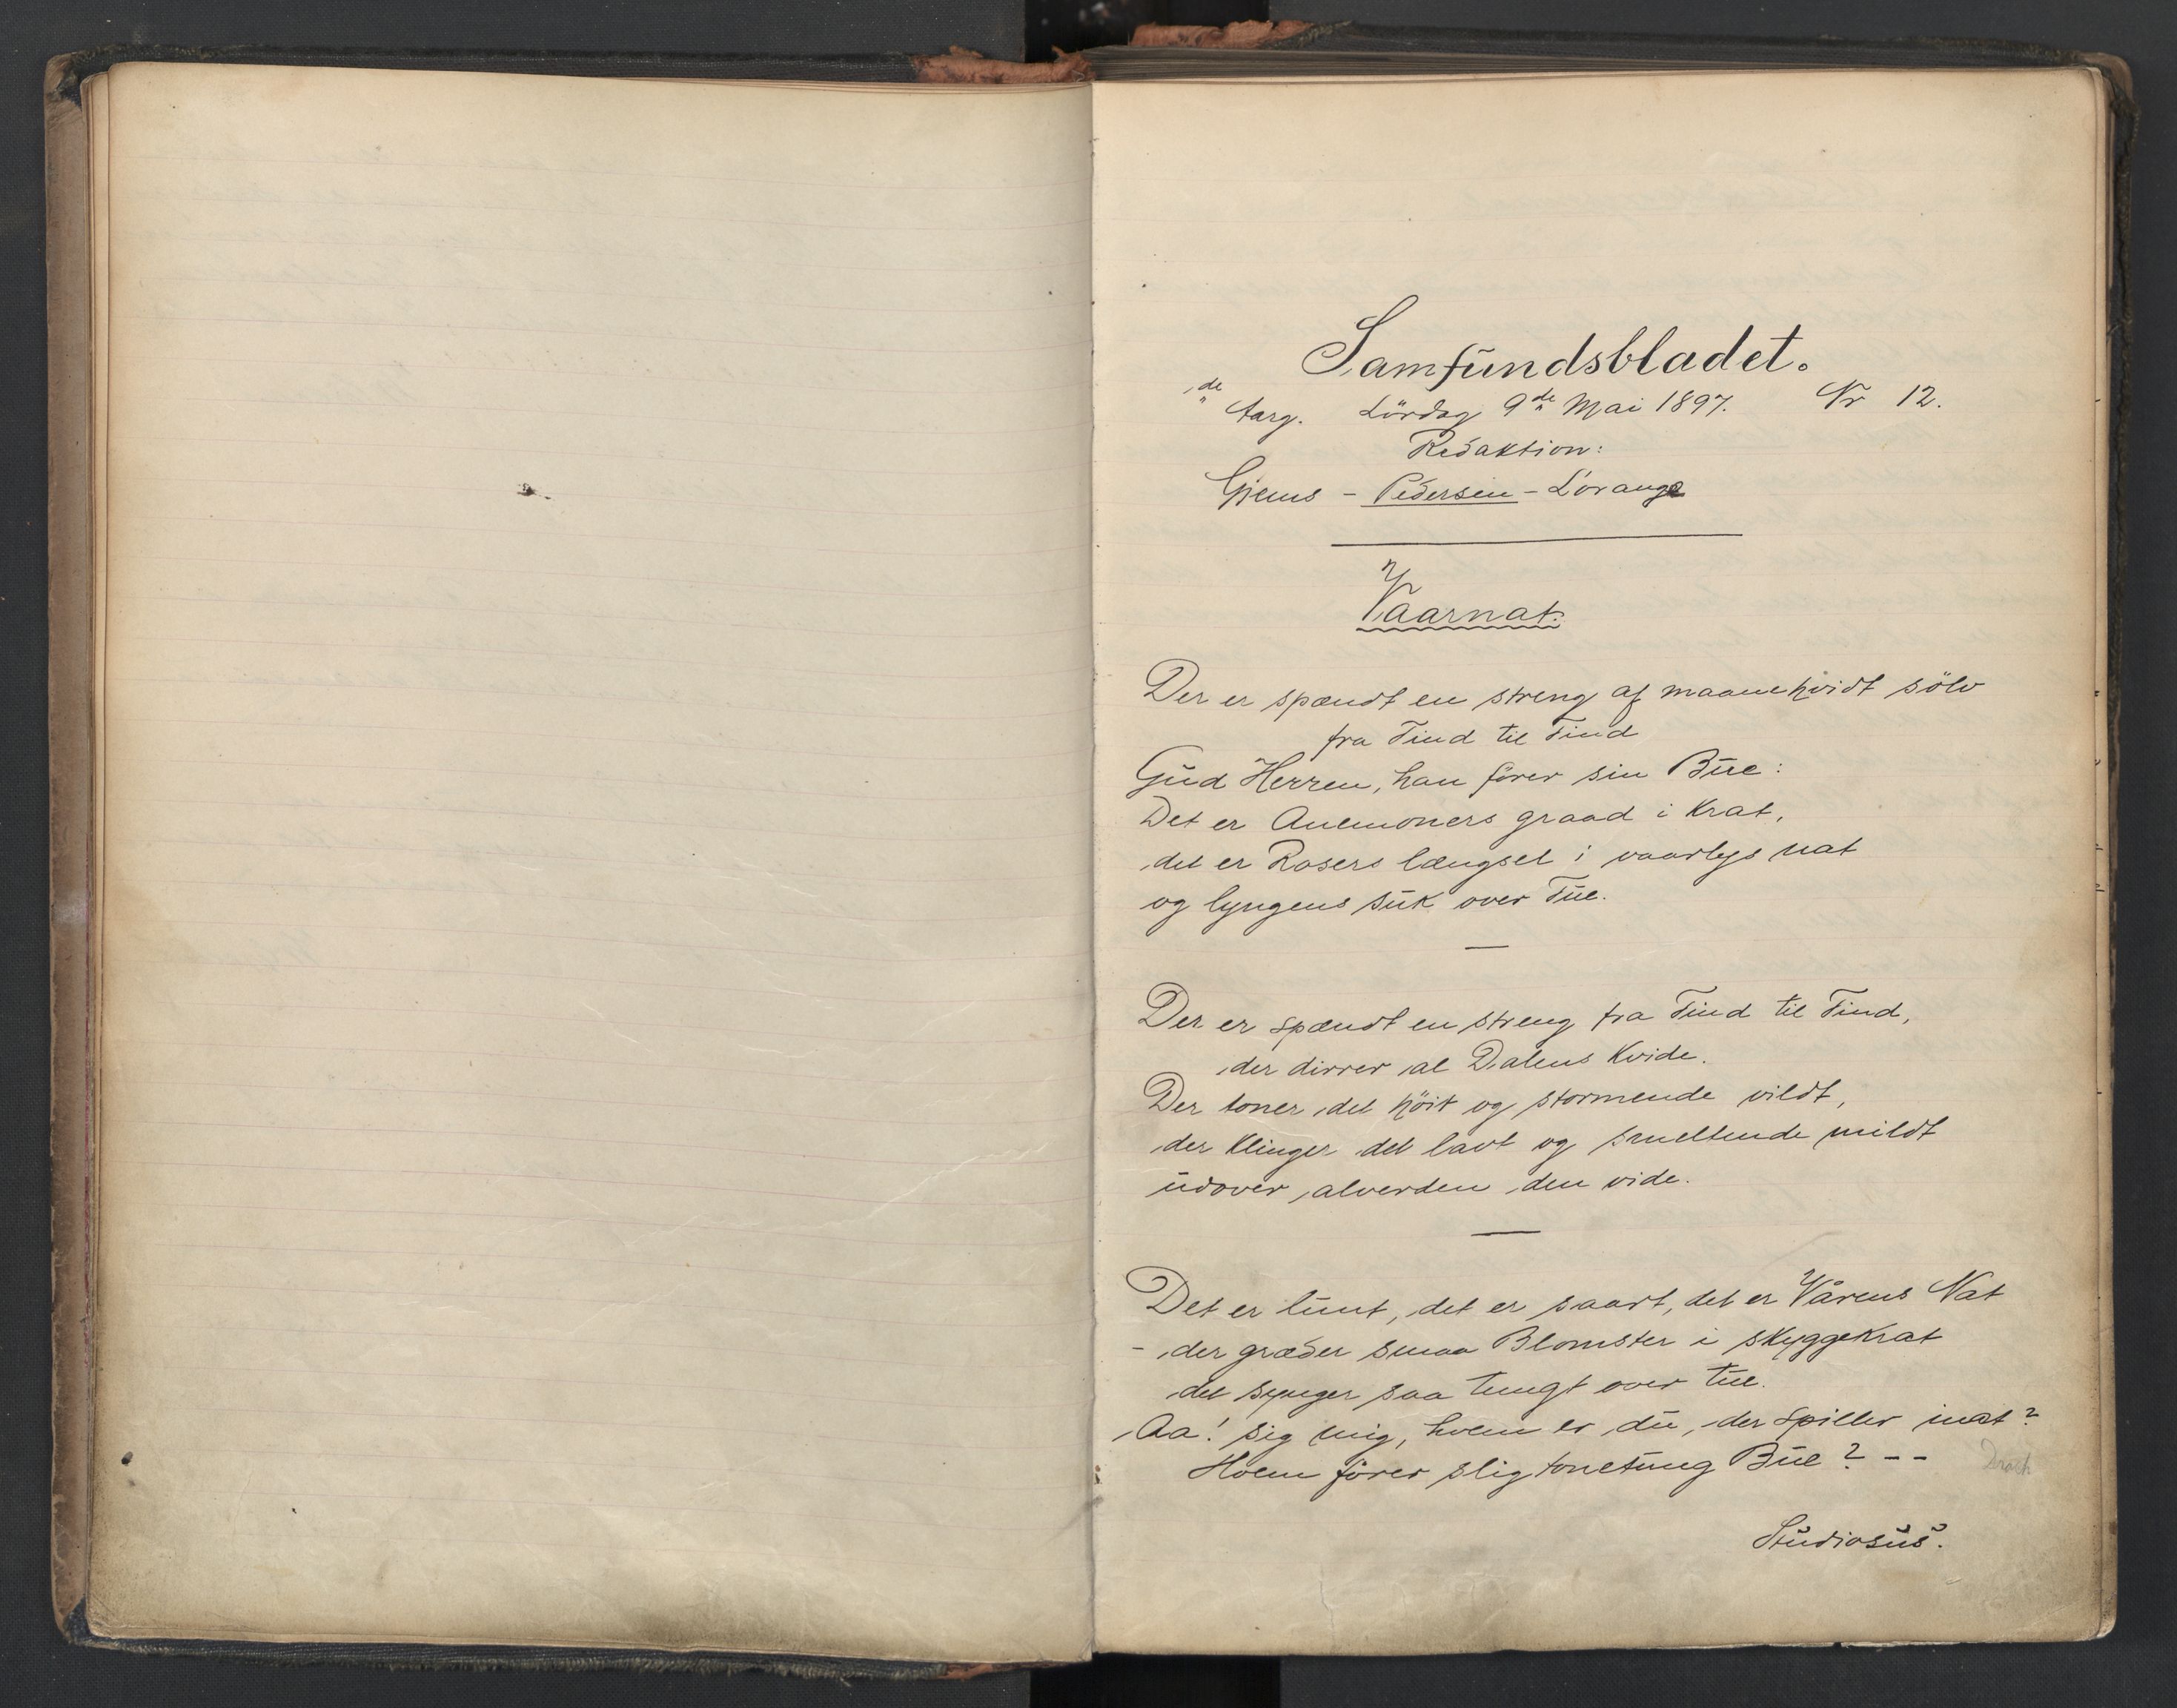 Samfundsbladet.
de Aarg. Lördag 9de Mai 1897. Nr 12.
Redaktion:
Gjems - Pedersen - Lorange
Vaarnat.
Der er spændt en streng af maanehvidt sölv
fra Tind til Tind
Gud Herren, han förer sin Bue:
Det er Anemoners graad i Krat,
det er Rosers længsel i vaarlys nat
og lyngens suk over Tue.
Der er spændt en streng fra Tind til Tind,
der dirrer al Dalens Kvide.
Der toner det höit og stormende vildt,
der klinger det lavt og smeltende mildt
udover alverden den vide.
Det er lunt, det er saart, det er Vårens Nat
- der græder smaa Blomster i skyggekrat
det synger saa tungt over tue.
Aa! sig mig, hvem er du, der spiller inat?
Hvem förer slig tonetung Bue? - -
Studiosus.